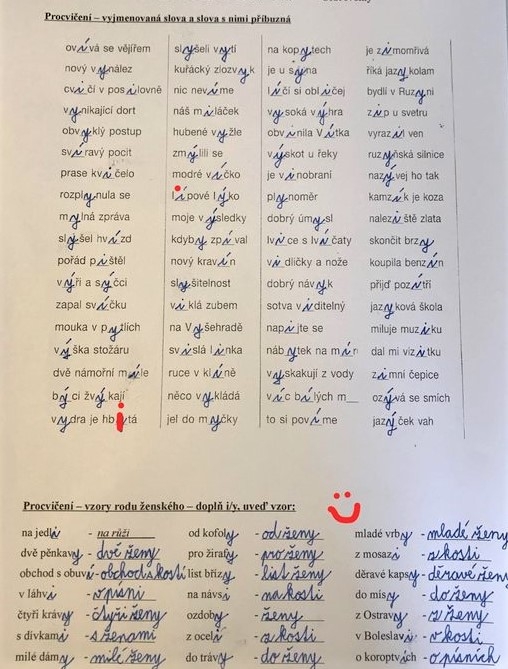 Procvičení – vyjmenovaná slova a slova s nimi příbuzná
ovívá se vějířem slyšeli vytí na kopytech je zimomřivá
nový vynález kuřácký zlozvyk je u syna říká jazykolam
cvičí v posilovně nic nevíme líčí si obličej bydlí v Ruzyni
vynikající dort náš miláček vysoká výhra zip u svetru
obvyklý postup hubené vyžle obvinila Vítka vyrazili ven
svíravý pocit zmýlili se výskot u řeky ruzyňská silnice
prase kvičelo modré víčko je vinobraní nazývej ho tak
rozplynula se lipové lýko plynoměr kamzík je koza
mylná zpráva moje výsledky dobrý úmysl naleziště zlata
slyšel hvízd kdyby zpíval lvice s lvíčaty skončit brzy
pořád pištěl nový kravín vidličky a nože koupila benzín
výři a sýčci slyšitelnost dobrý návyk přijď pozítří
zapal svíčku viklá zubem sotva viditelný jazyková škola
mouka v pytlích na Vyšehradě napijte se miluje muziku
výška stožáru svislá linka nábytek na mír dal mi vizitku
dvě námořní míle ruce v klíně vyskakují z vody zimní čepice
býci žvýkají něco vykládá víc bílých m__ ozývá se smích
vydra je hbitá jel do myčky to si povíme jazýček vah
Procvičení – vzory rodu ženského – doplň i/y, uveď vzor:
na jedli - na růži od kofoly - od ženy mladé vrby - mladé ženy
dvě pěnkavy - dvě ženy pro žirafy - pro ženy z mosazi - z kosti
obchod s obuví - obchod s kostí list břízy - list ženy děravé kapsy - děravé ženy
v láhvi - v písni na návsi - na kosti do mísy - do ženy
čtyři krávy - čtyři ženy ozdoby - ženy z Ostravy - z ženy
s dívkami - s ženami z oceli - z kosti v Boleslavi - v kosti
milé dámy - milé ženy do trávy - do ženy o koroptvích - o písních